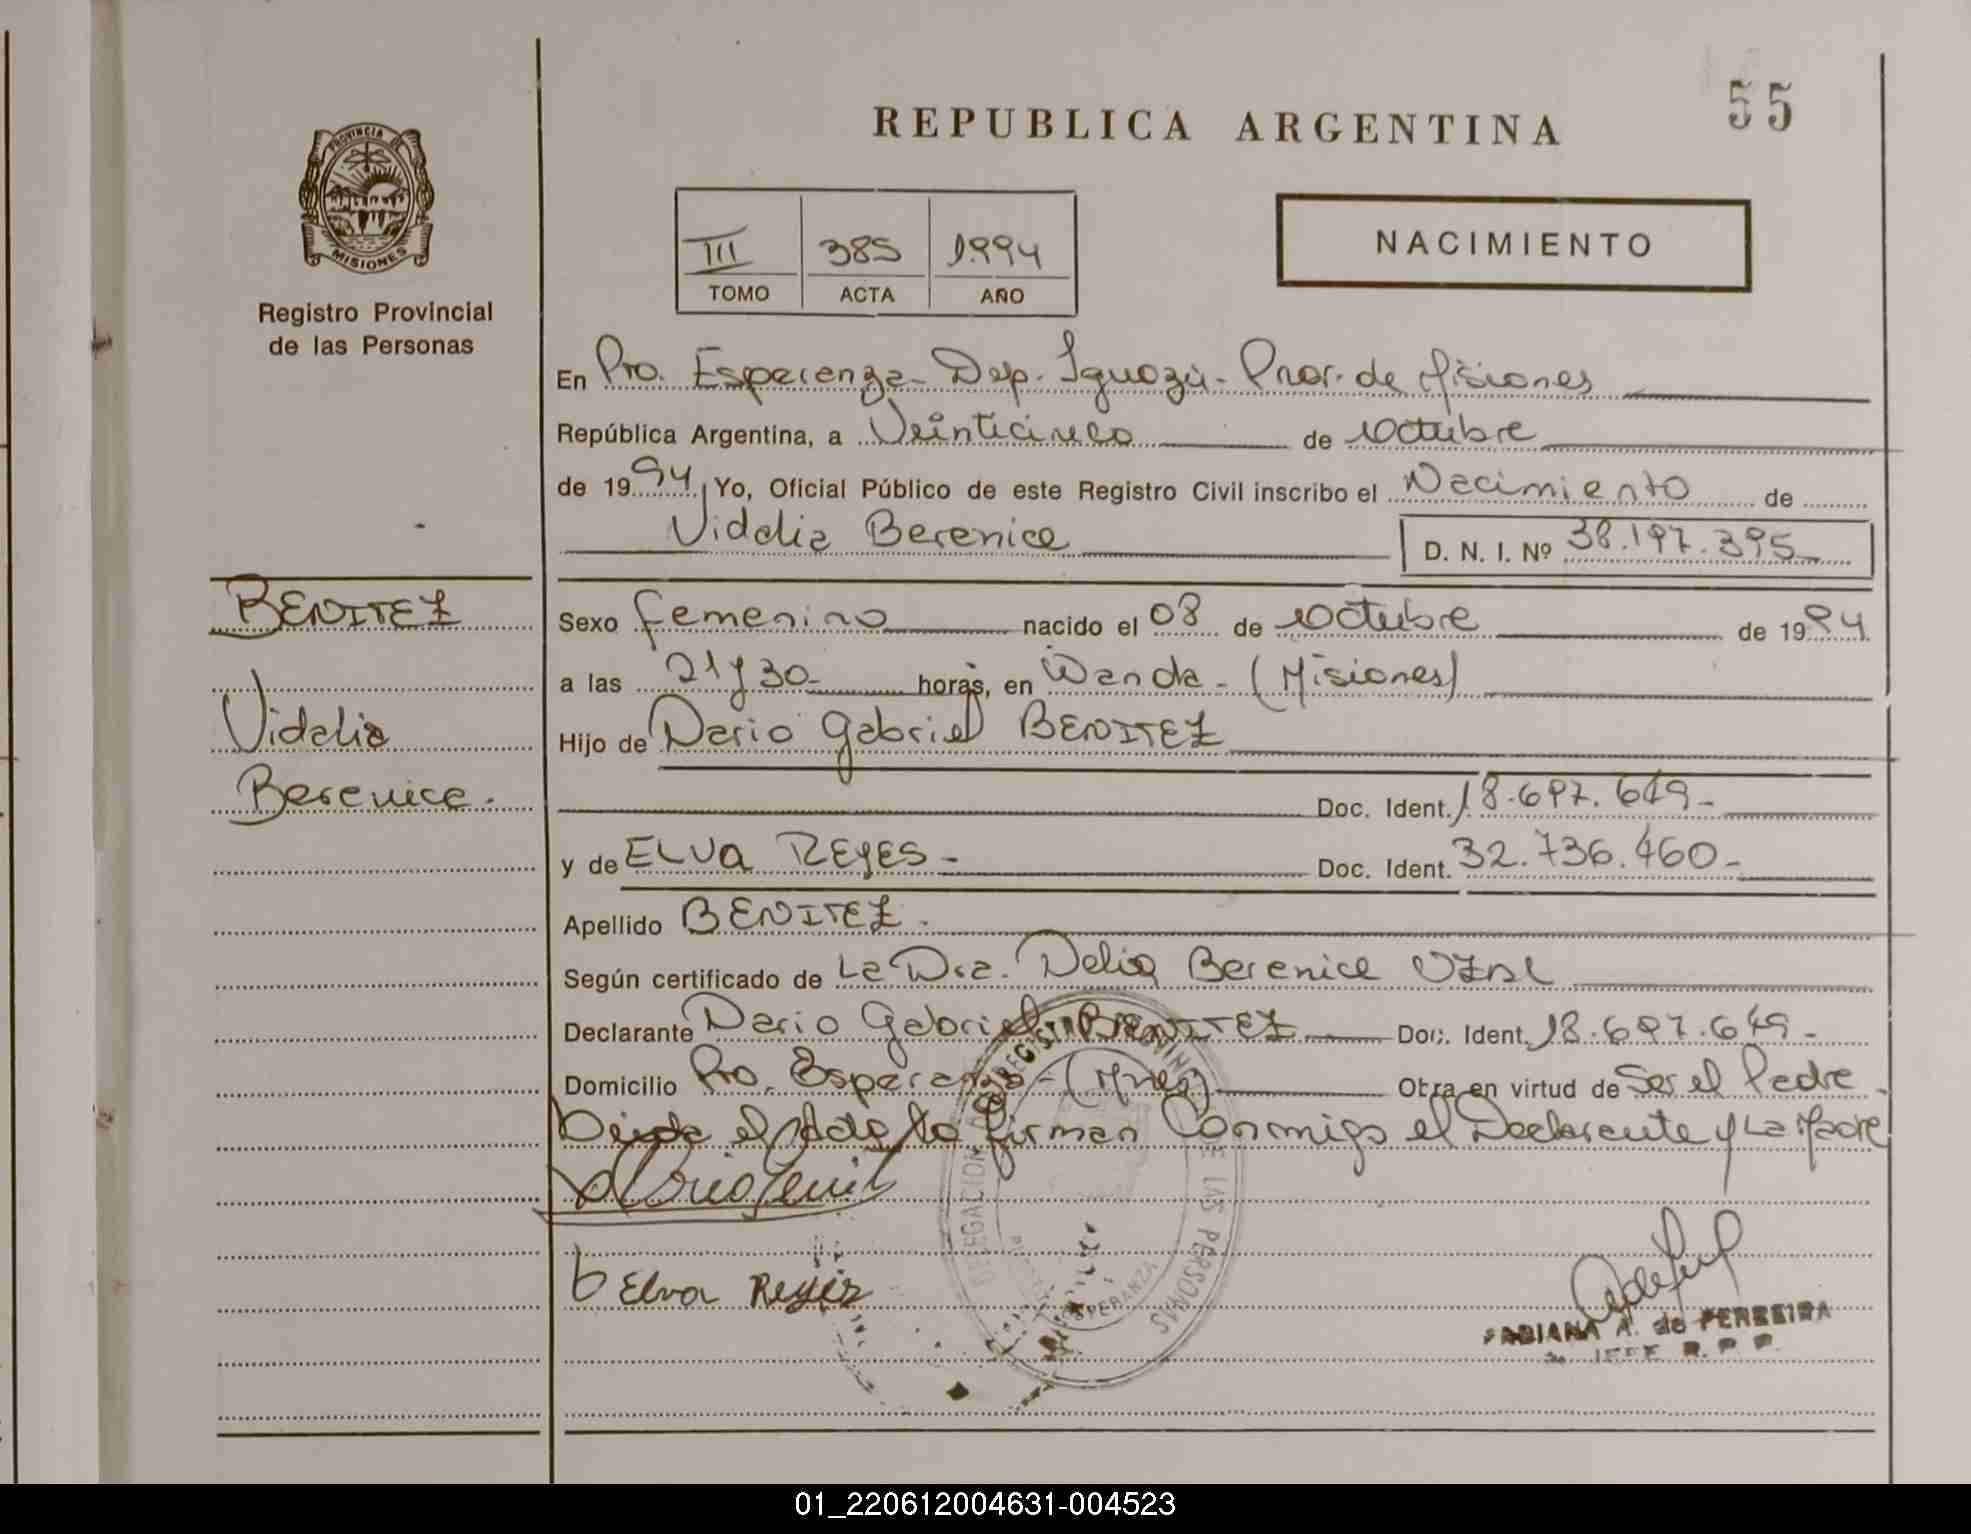 REPUBLICA ARGENTINA
55
PROVINCIA
MISIONES
Registro Provincial
de las Personas
III 385 1994
TOMO ACTA AÑO
NACIMIENTO
En Pto. Esperanza - Dep. Iguazú - Prov. de Misiones
República Argentina, a Veinticinco de Octubre
de 1994 Yo, Oficial Público de este Registro Civil inscribo el Nacimiento de
Vidalia Berenice D. N. I. Nº 38.197.395
BENITEZ
Vidalia
Berenice.
Sexo femenino nacido el 08 de Octubre de 1994
a las 21 y 30 - horas, en Wanda - (Misiones)
Hijo de Dario Gabriel BENITEZ
Doc. Ident. 18.697.649 -
y de ELVA REYES - Doc. Ident. 32.736.460 -
Apellido BENITEZ.
Según certificado de La Dra. Delia Berenice
Declarante Dario Gabriel BENITEZ Doc. Ident. 18.697.649 -
Domicilio Pto. Esperanza - (Mnes) Obra en virtud de Ser el Padre
Leida el Acta la firman Conmigo el Declarante y La Madre
Elva Reyes
DELEGACION REGISTRO PROVINCIAL DE LAS PERSONAS
ESPERANZA
FABIANA A. de PERREIRA
JEFE R. P. P.
01_220612004631-004523